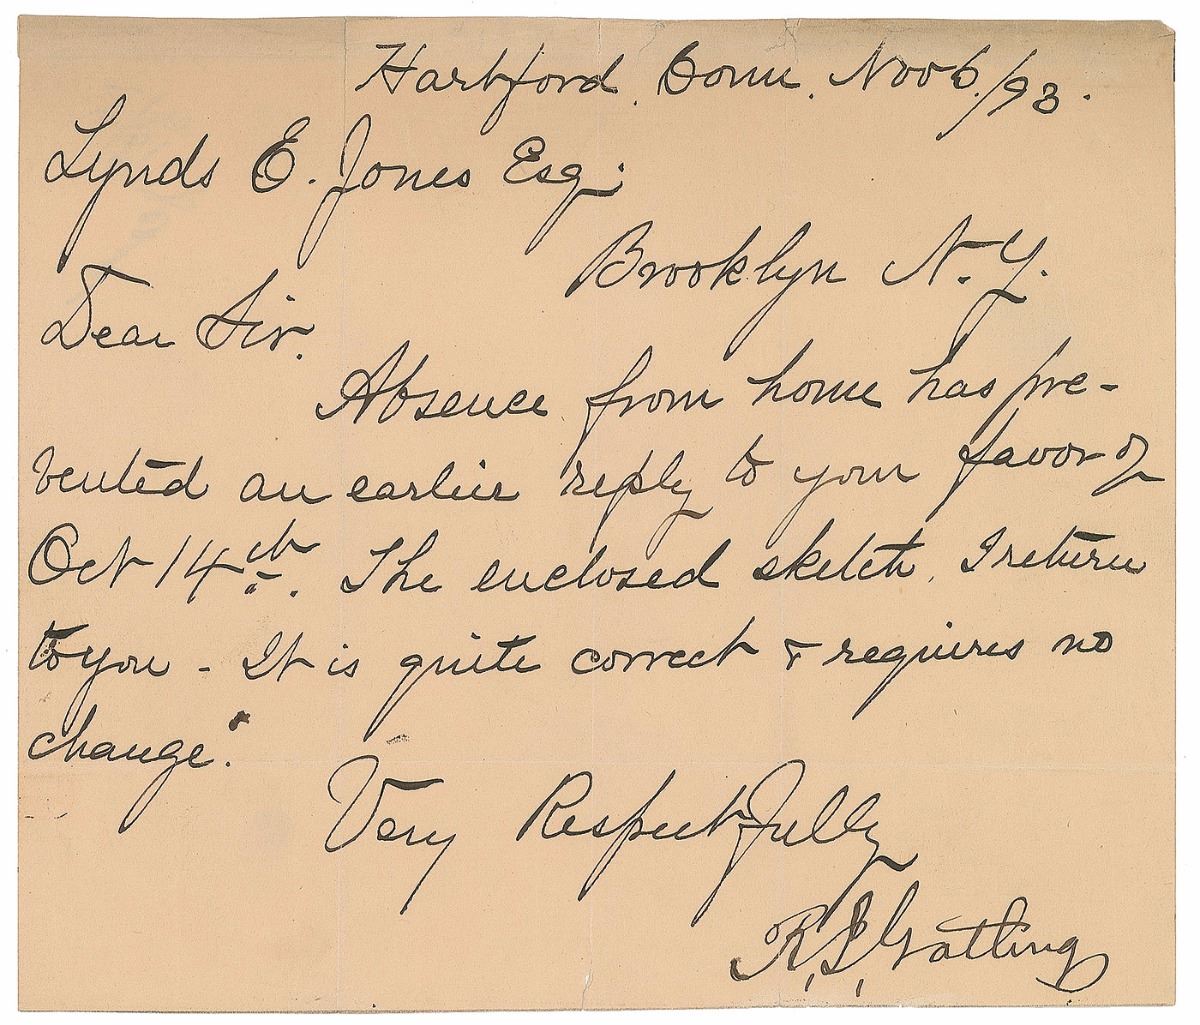 Hartford, Conn. Nov 6./93.
Lynds E. Jones Esq.
Brooklyn N.Y.
Dear Sir.
Absence from home has pre-
vented an earlier reply to your favor of
Oct 14th. The enclosed sketch, I return
to you - It is quite correct & requires no
change.
Very Respectfully
R. J. Gatling